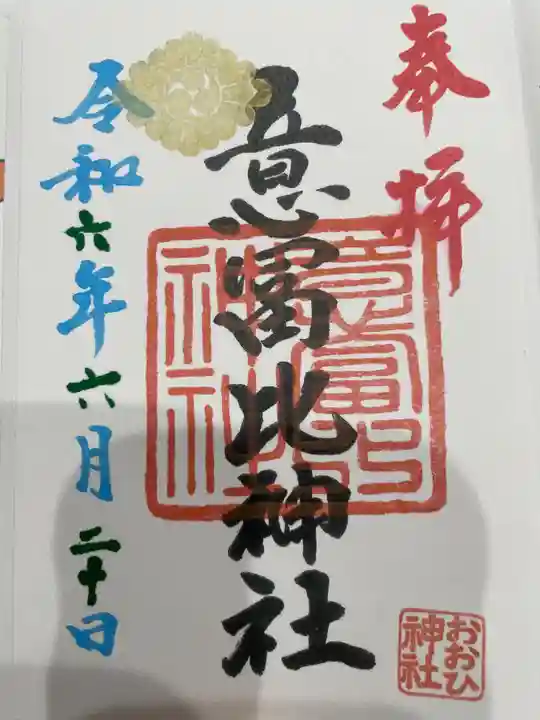 奉拝
意富比神社
意富比神社
令和六年六月二十日
おおひ神社